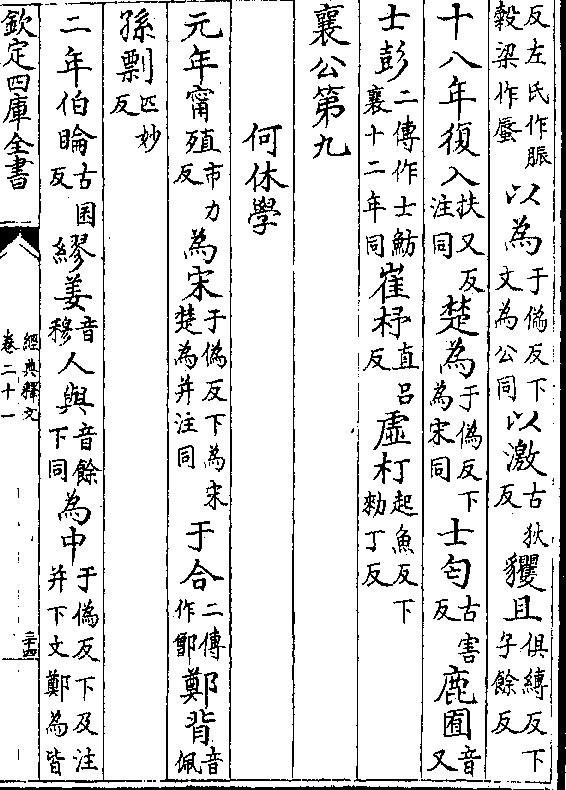 反左氏作脤穀梁作蜃以為于僞反下文為公同以激古狄反貜且俱縛反下子餘反
十八年復入扶又反注同楚為于僞反下為宋同士匄古害反鹿囿音又
士彭二傳作士魴襄十二年同崔杼直呂反虛朾起魚反下勑丁反
襄公第九
何休學
元年甯殖市力反為宋于僞反下為宋楚為并注同于合二傳作鄫鄭背音佩
孫剽匹妙反
二年伯睔古囷反繆姜音穆人與音餘下同為中于僞反下及注并下文鄭為皆
欽定四庫全書
經典釋文
卷二十一
三十四